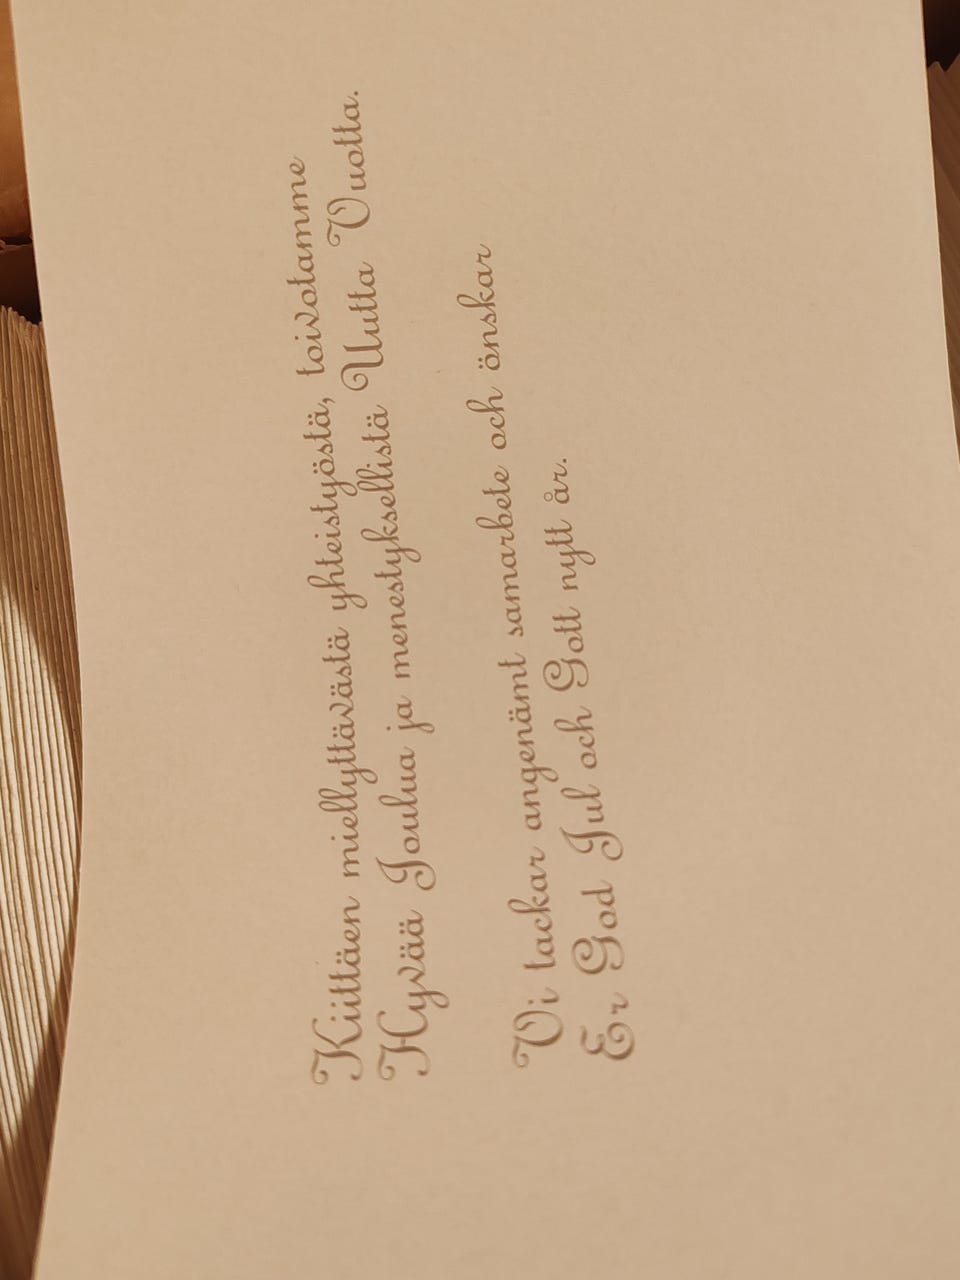 Kiittäen miellyttävästä yhteistyöstä, toivotamme
Hyvää Joulua ja menestyksellistä Uutta Vuotta.
Vi tackar angenämt samarbete och önskar
Er God Jul och Gott nytt år.